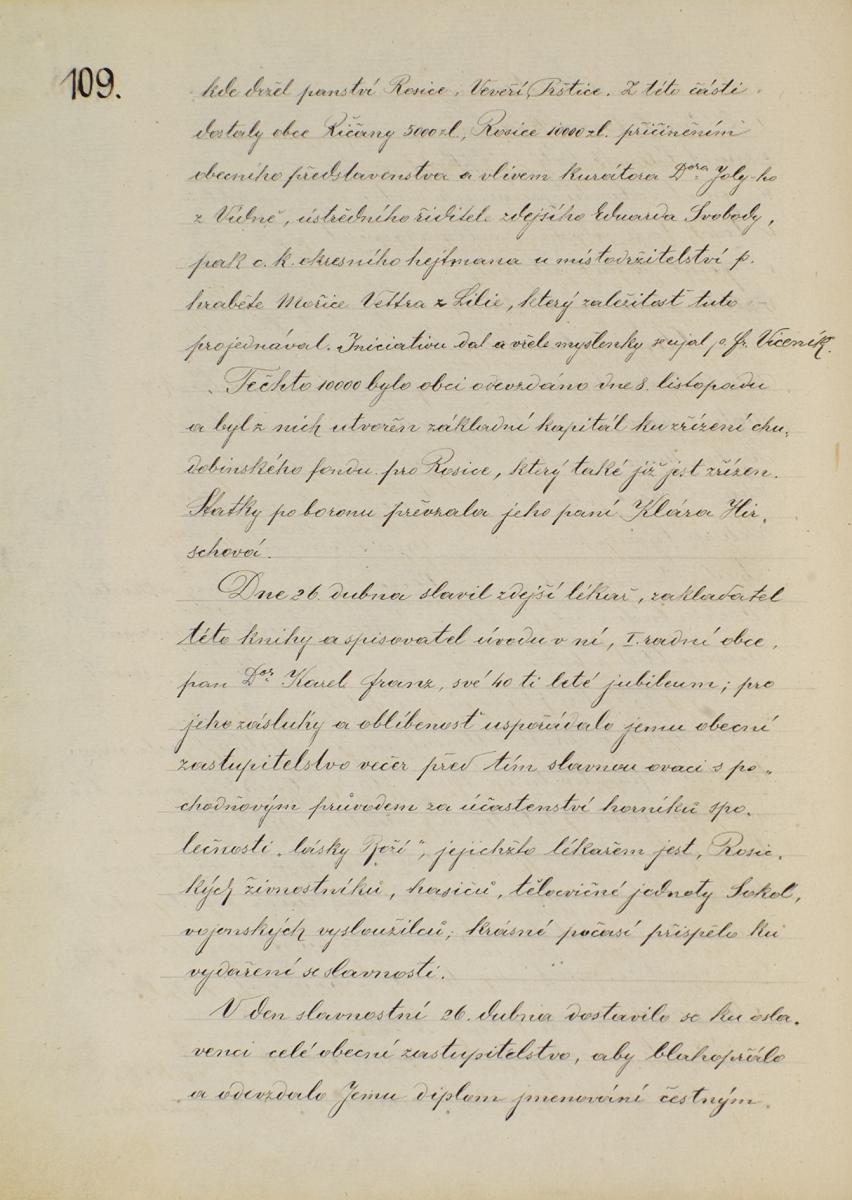 109.
kde držel panství Rosice, Veveří, Prštice. Z této části
dostaly obce Říčany 5000 zl., Rosice 10000 zl. přičiněním
obecního představenstva a vlivem kurátora Dora Joly-ho
z Vídně, ústředního ředitele zdejšího Eduarda Svobody,
pak c. k. okresního hejtmana u místodržitelství p.
hraběte Mořice Vettra z Lilie, který zaležitost tuto
projednával. Iniciativu dal a vřele myšlenky se ujal p. Fr. Viceník.
Těchto 10000 bylo obci odevzdáno dne 8. listopadu
a byl z nich utvořen základní kapitál ku zřízení chu„
dobinského fondu pro Rosice, který také již jest zřízen.
Statky po baronu převzala jeho paní Klára Hir„
schová.
Dne 26. dubna slavil zdejší lékař, zakladatel
této knihy a spisovatel úvodu v ní, I. radní obce,
pan Dor Karel Franz, své 40 ti leté jubileum; pro
jeho zásluhy a oblíbenost uspořádalo jemu obecní
zastupitelstvo večer před tím slavnou ovaci s po„
chodňovým průvodem za účastenství horníků spo„
lečnosti „lásky Boží", jejichžto lékařem jest, Rosic„
kých živnostníků, hasičů, tělocvičné jednoty Sokol,
vojenských vysloužilců; krásné počasí přispělo ku
vydaření se slavnosti.
V den slavnostní 26. dubna dostavilo se ku osla„
venci celé obecní zastupitelstvo, aby blahopřálo
a odevzdalo Jemu diplom jmenování čestným